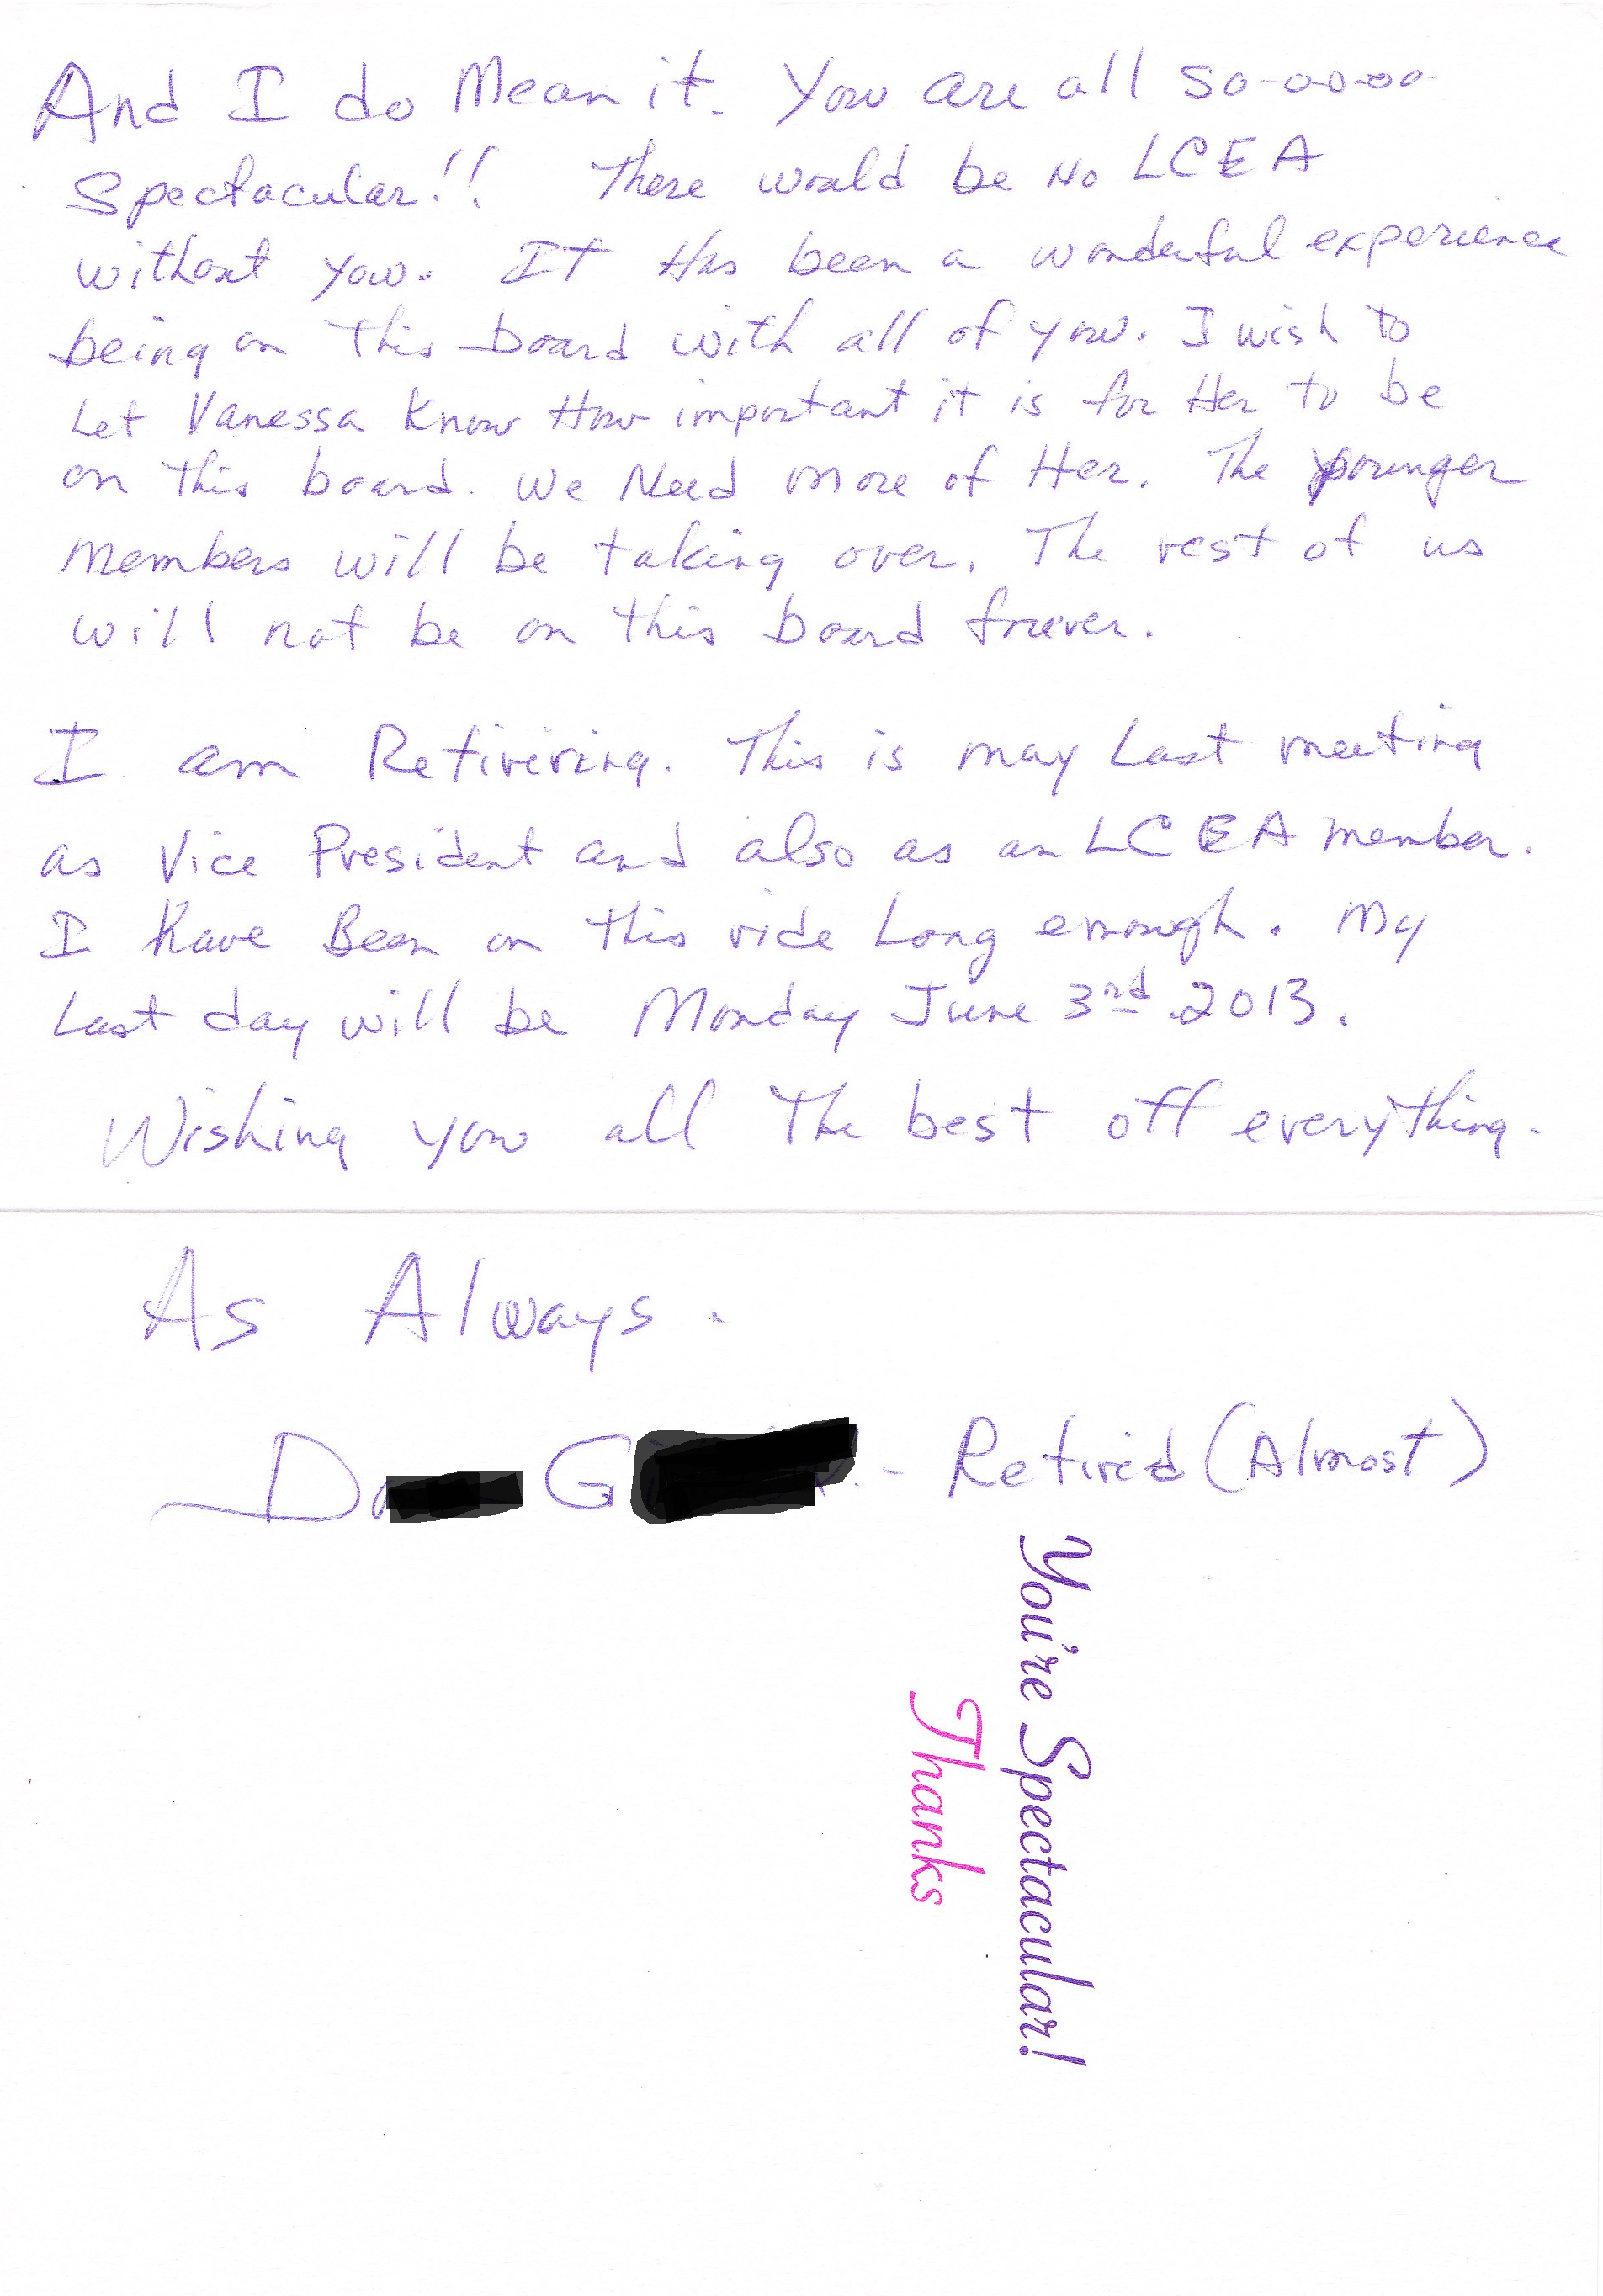 And I do Mean it. You are all so-o-o-oo
Spectacular!! There would be No LCEA
without you. It Has been a wonderful experience
being on This board with all of you. I wish to
Let Vanessa Know How important it is for Her to be
on This board. We Need more of Her. The younger
Members will be taking over. The rest of us
will not be on this board forever.
I am Retirering. This is may Last meeting
as Vice President and also as an LCEA member.
I Have Been on this ride Long enough. My
Last day will be Monday June 3rd 2013.
Wishing you all The best off everything.
As Always.
D G - Retired (Almost)
You're Spectacular!
Thanks